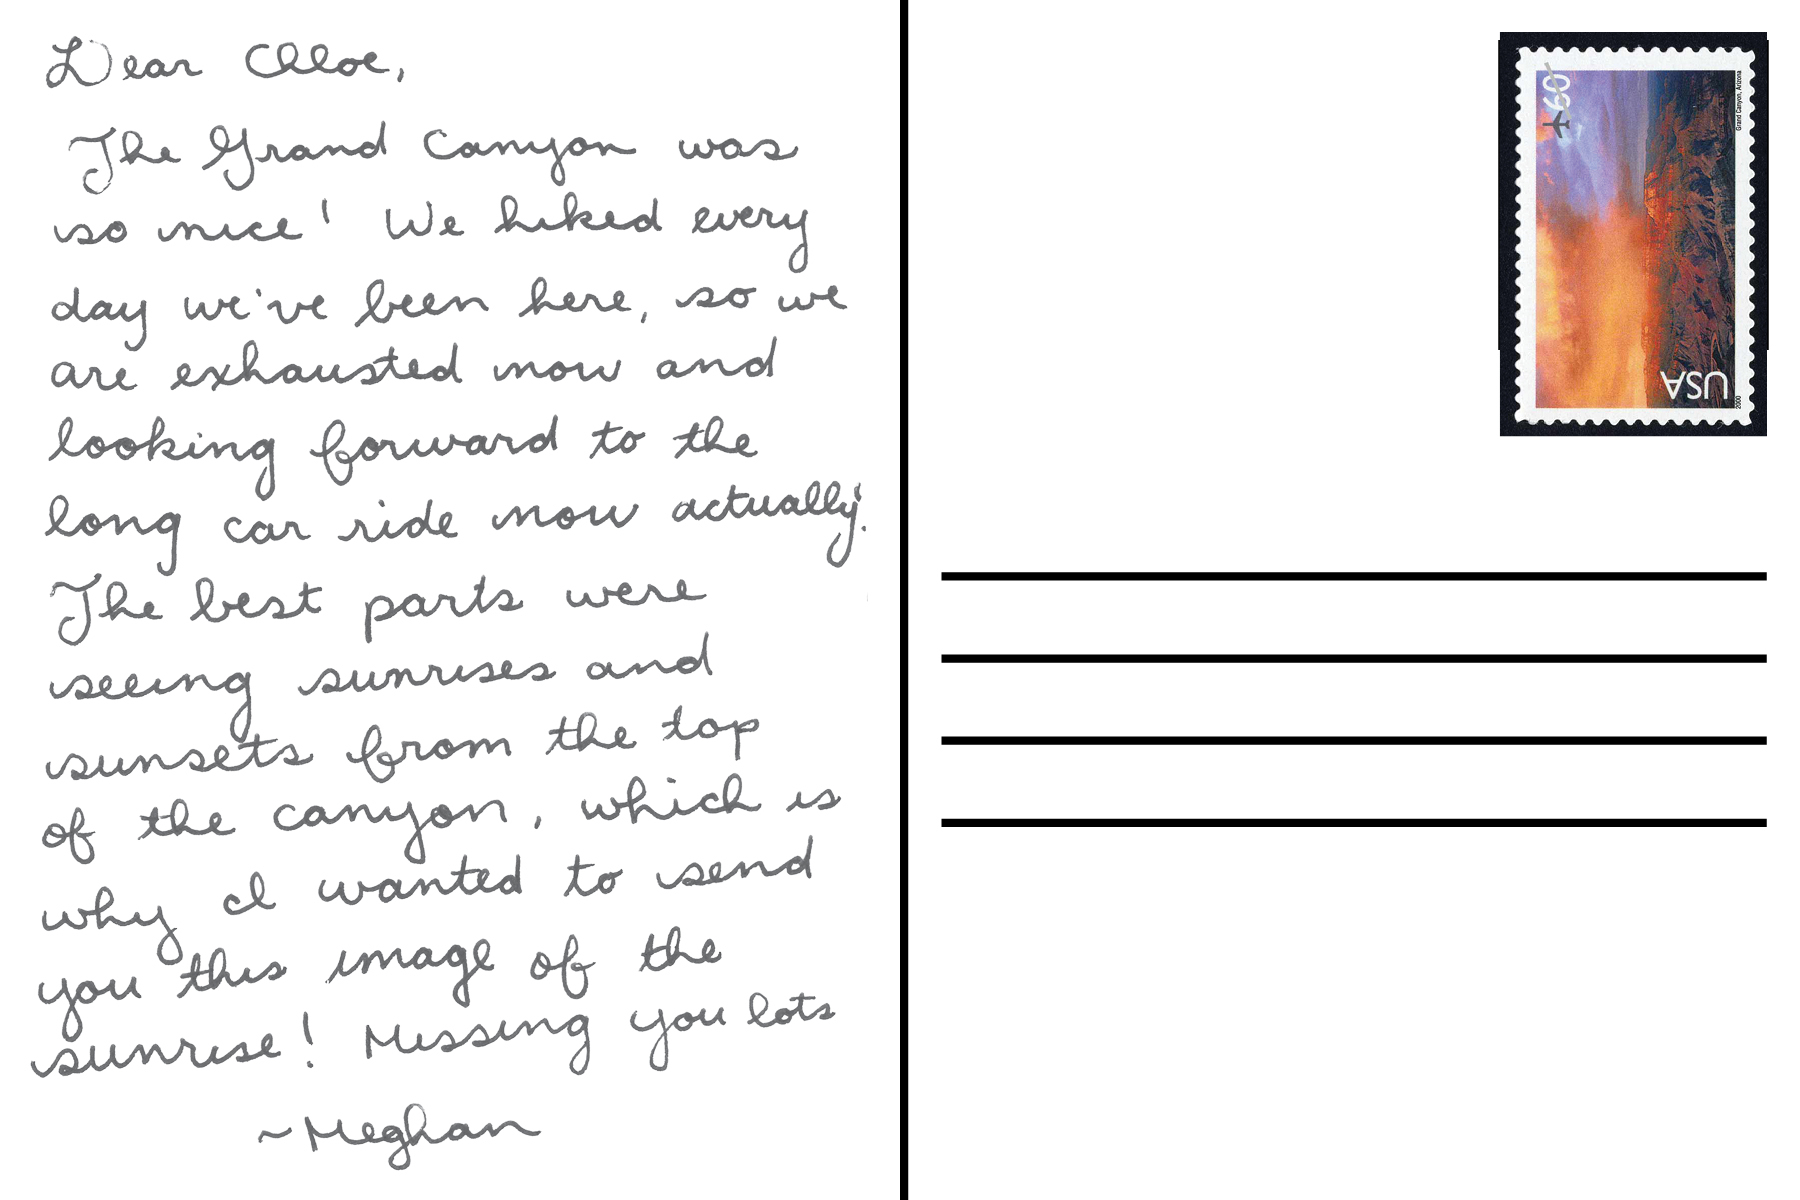 Dear Chloe,
The Grand Canyon was
so nice! We hiked every
day we've been here, so we
are exhausted now and
looking forward to the
long car ride now actually!
The best parts were
seeing sunrises and
sunsets from the top
of the canyon, which is
why I wanted to send
you this image of the
sunrise! Missing you lots
~Meghan
60
Grand Canyon, Arizona
USA
2000